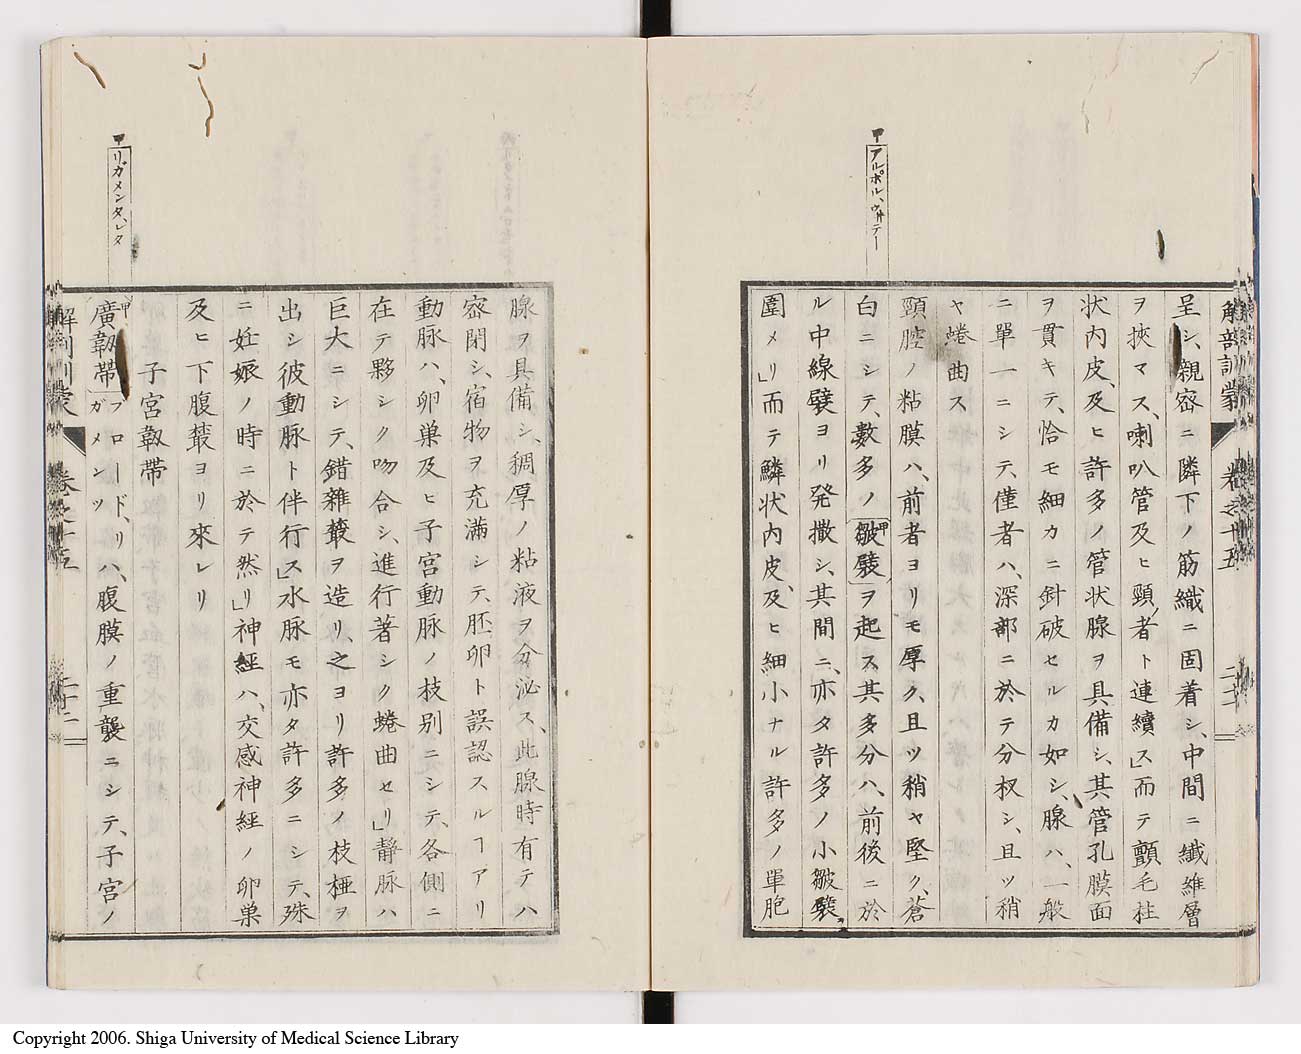 解剖訓蒙
卷之十五
甲 アルボル、ヴィテー
呈シ、親密ニ隣下ノ筋織ニ固着シ、中間ニ纖維層
ヲ挾マス、喇叭管及ヒ頸ノ者ト連續ス」而テ顫毛柱
状内皮、及ヒ許多ノ管状腺ヲ具備シ、其管孔膜面
ヲ貫キテ、恰モ細カニ針破セルカ如シ、腺ハ、一般
ニ單一ニシテ、僅者ハ、深部ニ於テ分杈シ、且ツ稍
ヤ蜷曲ス
頸腔ノ粘膜ハ、前者ヨリモ厚ク、且ツ稍ヤ堅ク、蒼
白ニシテ、數多ノ甲皺襞ヲ起ス其多分ハ、前後ニ於
ル中線襞ヨリ発撒シ、其間ニ、亦タ許多ノ小皺襞
圍メリ」而テ鱗状内皮、及ヒ細小ナル許多ノ單胞
腺ヲ具備シ、稠厚ノ粘液ヲ分泌ス、此腺時有テハ
密閉シ、宿物ヲ充滿シテ、胚卵ト誤認スルヿアリ
動脉ハ、卵巣及ヒ子宮動脉ノ枝別ニシテ、各側ニ
在テ夥シク吻合シ、進行著シク蜷曲セリ」靜脉ハ
巨大ニシテ、錯雜叢ヲ造リ、之ヨリ許多ノ枝椏ヲ
出シ彼動脉ト伴行ス」水脉モ亦タ許多ニシテ、殊
ニ妊娠ノ時ニ於テ然リ」神經ハ、交感神經ノ卵巣
及ヒ下腹叢ヨリ來レリ
子宮韌帶
甲廣韌帶 ブロードド、リガメンツ ハ、腹膜ノ重襲ニシテ、子宮ノ
甲 リガメンタ、レタ
解剖訓蒙
卷之十五